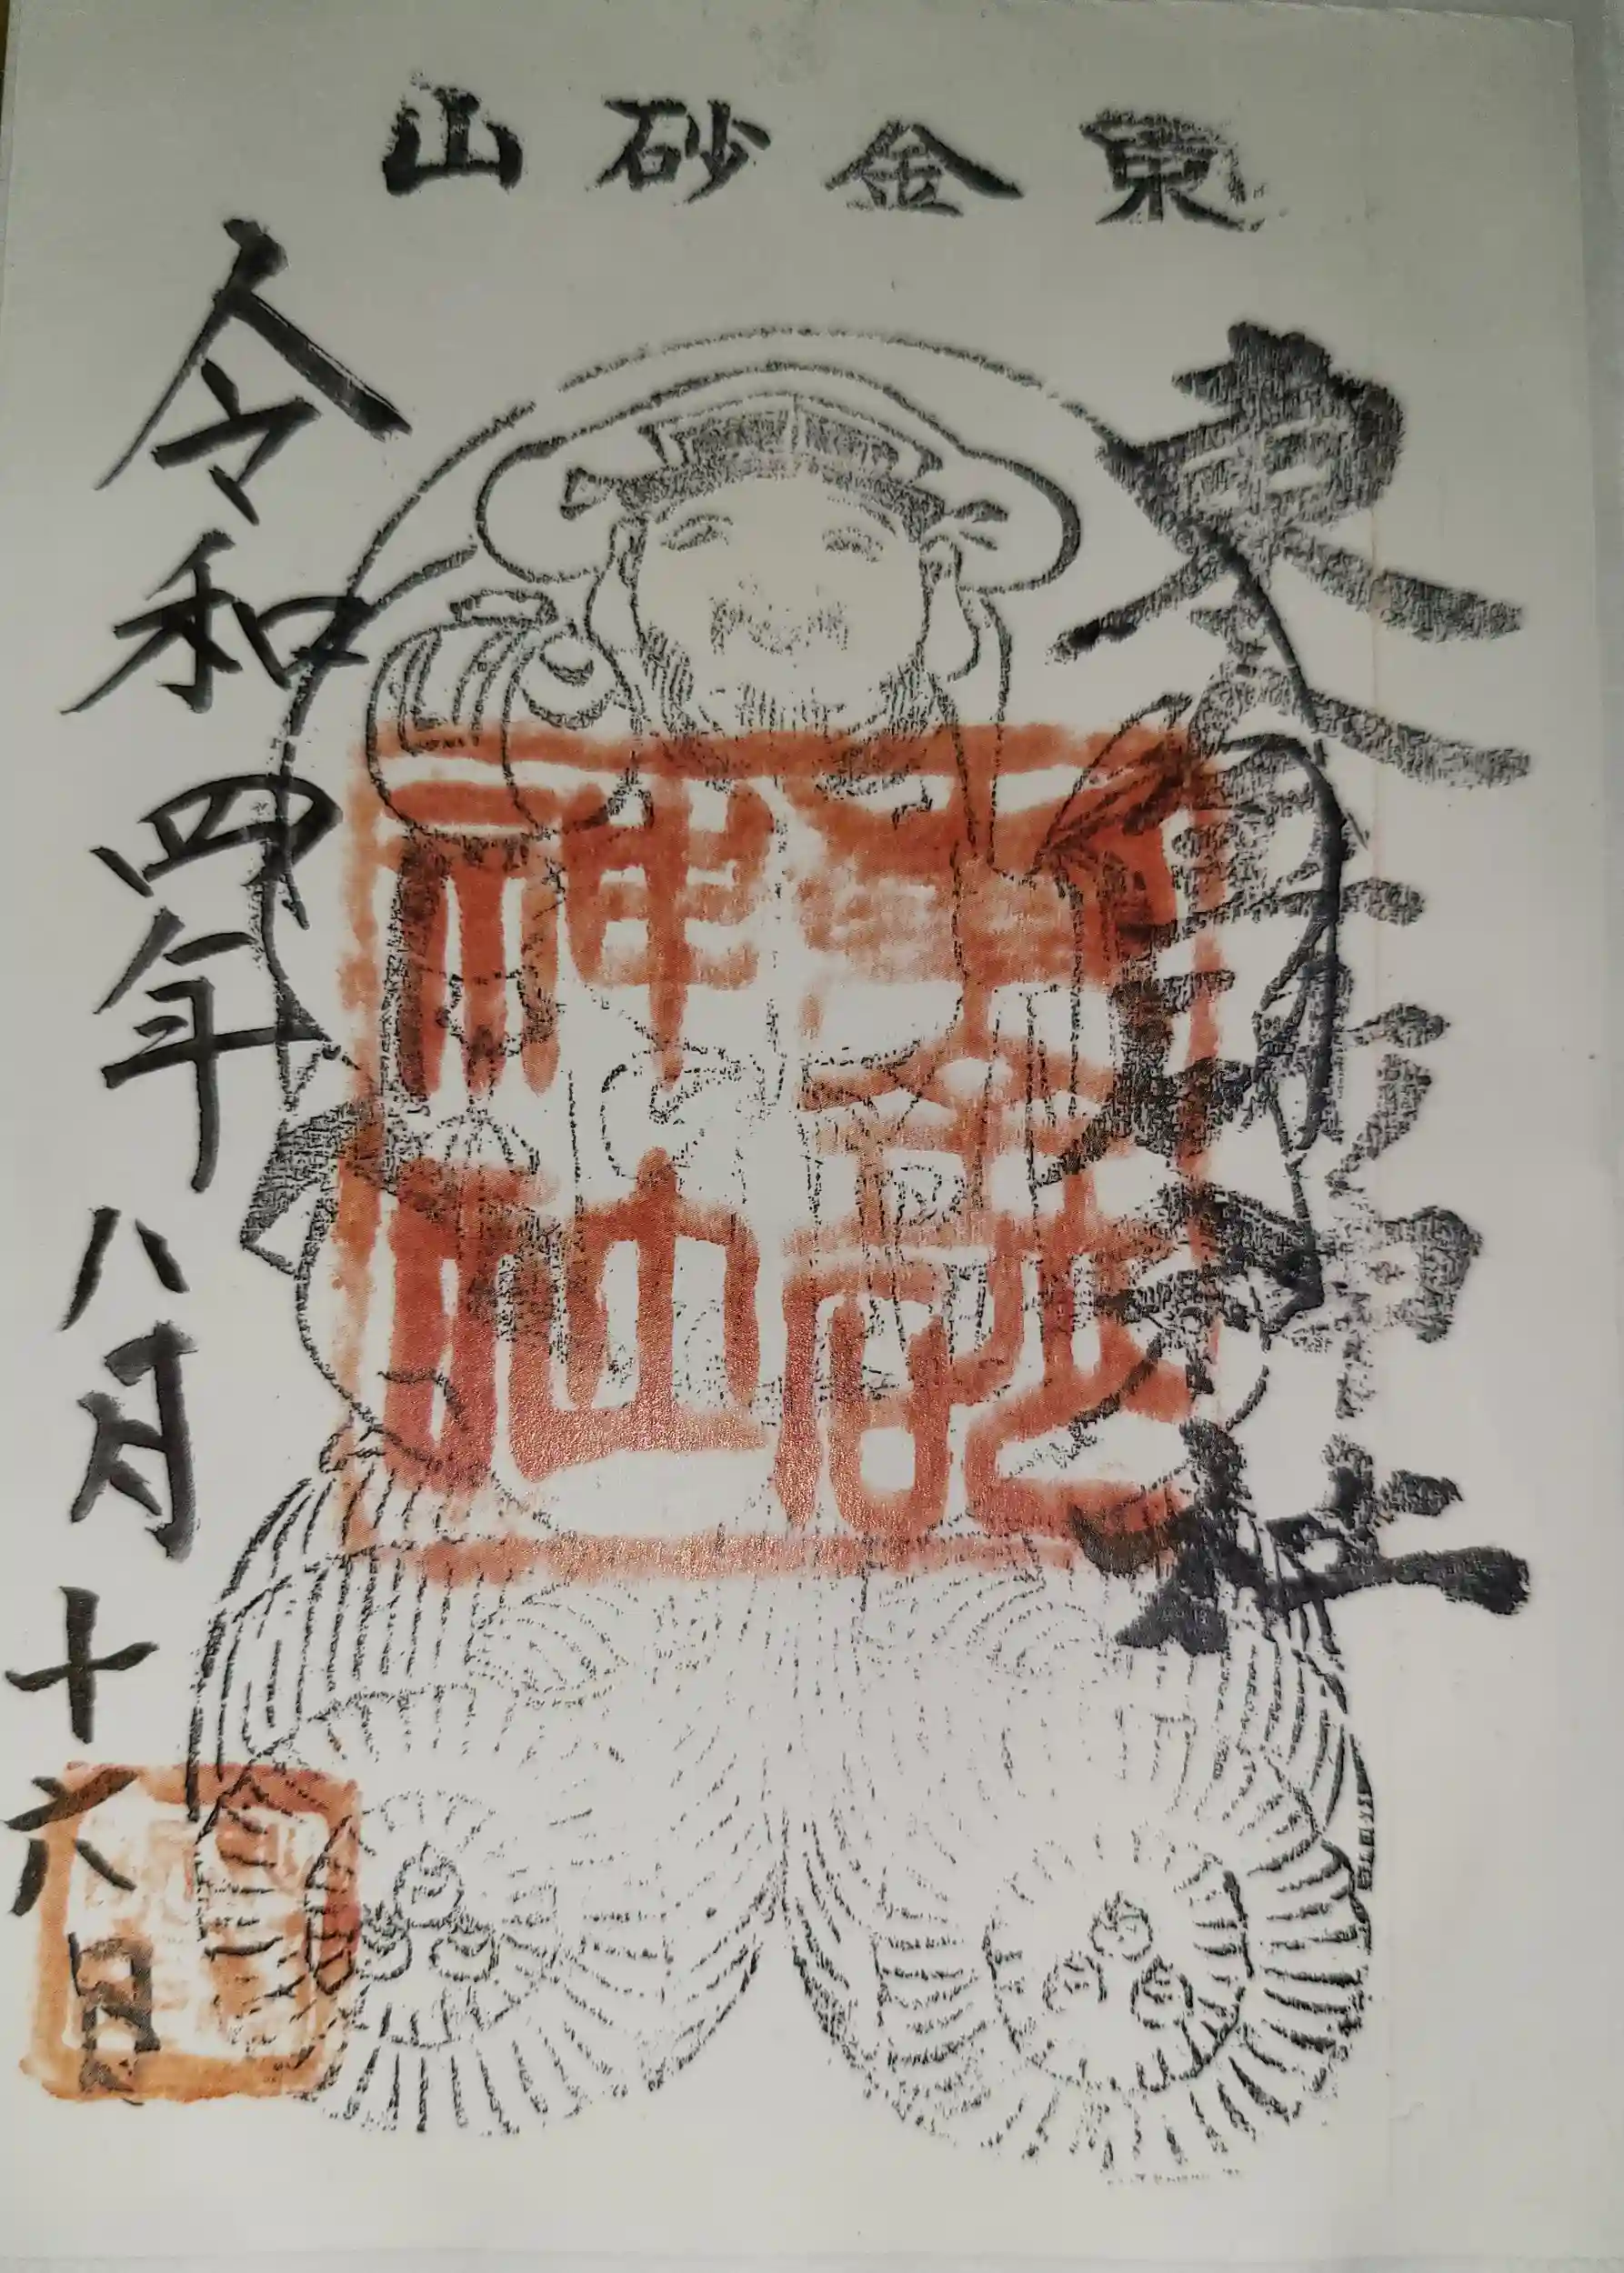 東金砂山
東金砂神社
東金砂神社
令和四年八月十六日